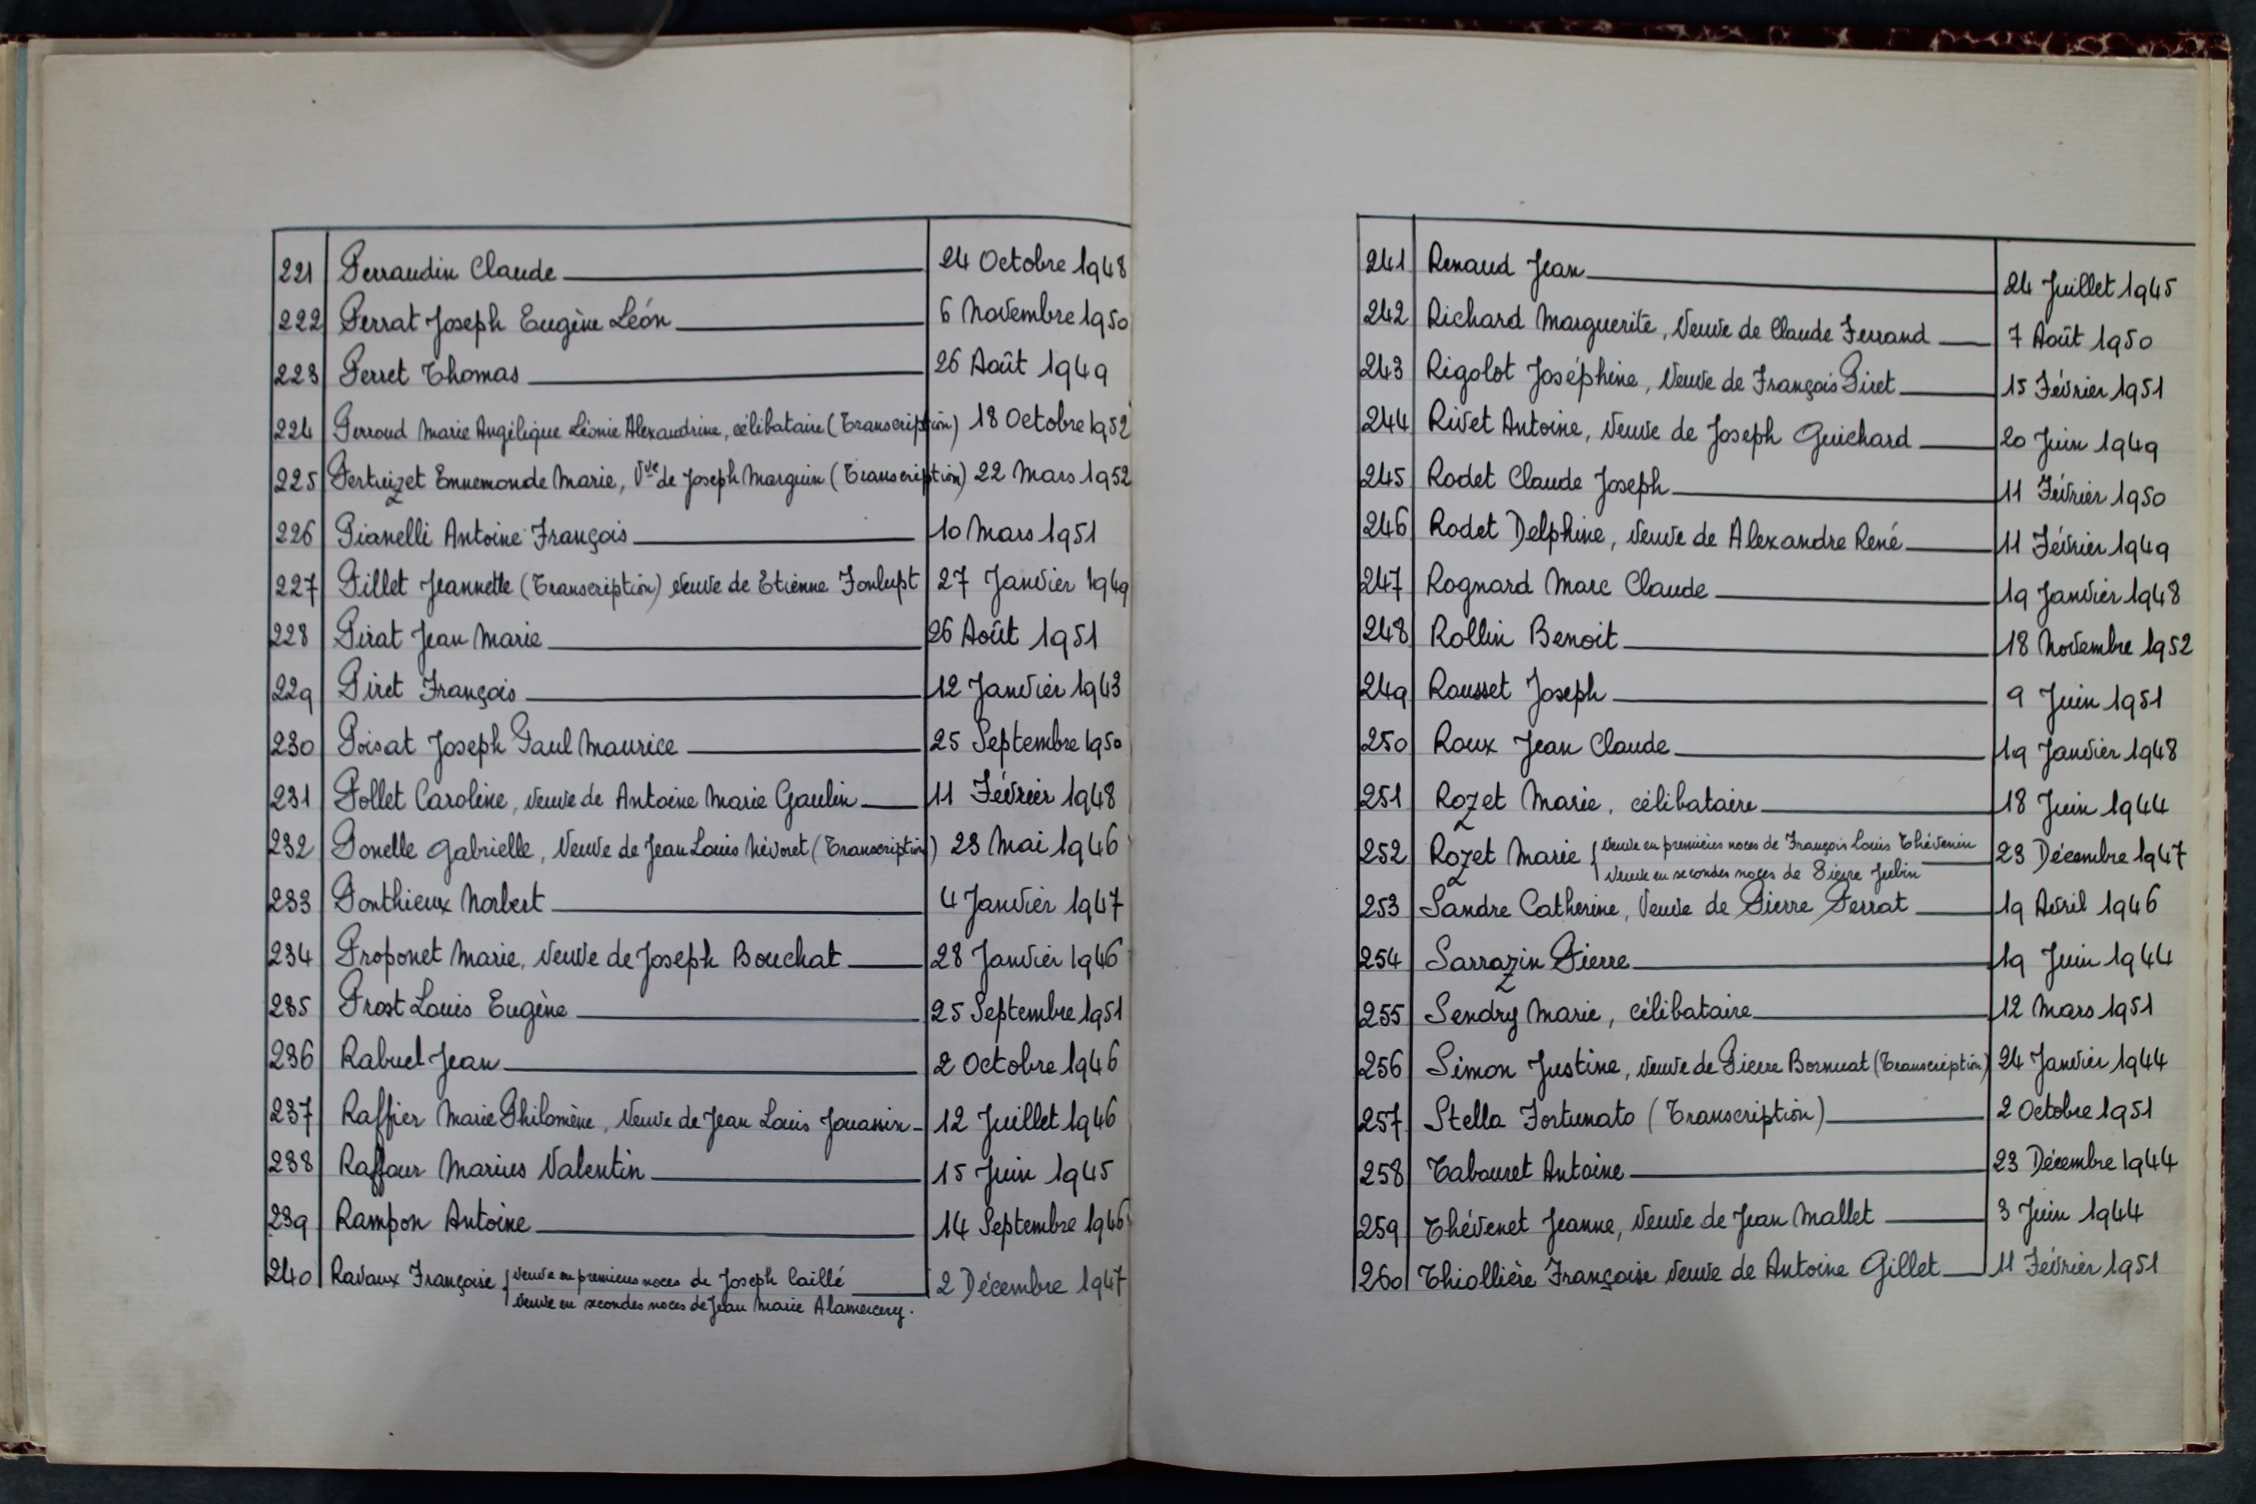 221 Perraudin Claude 24 Octobre 1948
222 Perrat Joseph Eugène Léon 6 Novembre 1950
223 Perret Thomas 26 Août 1949
224 Perroud Marie Angélique Léonie Alexandrine, célibataire (Transcription) 18 Octobre 1952
225 Pertuizet Ennemonde Marie, Vve de Joseph Marguin (Transcription) 22 Mars 1952
226 Pianelli Antoine François 10 Mars 1951
227 Pillet Jeannette (Transcription) Veuve de Etienne Fonlupt 27 Janvier 1949
228 Pirat Jean Marie 26 Août 1951
229 Piret François 12 Janvier 1943
230 Poisat Joseph Paul Maurice 25 Septembre 1950
231 Pollet Caroline, Veuve de Antoine Marie Gaulin 11 Février 1948
232 Ponelle Gabrielle, Veuve de Jean Louis Névoret (Transcription) 23 Mai 1946
233 Ponthieux Norbert 4 Janvier 1947
234 Proponet Marie, Veuve de Joseph Bouchat 28 Janvier 1946
235 Prost Louis Eugène 25 Septembre 1951
236 Rabuel Jean 2 Octobre 1946
237 Raffier Marie Philomène, Veuve de Jean Louis Jouannin 12 Juillet 1946
238 Raffour Marius Valentin 15 Juin 1945
239 Rampon Antoine 14 Septembre 1946
240 Ravaux Françoise { Veuve en premières noces de Joseph Caillé 2 Décembre 1947
Veuve en secondes noces de Jean Marie Alamercery.
241 Renaud Jean 24 Juillet 1945
242 Richard Marguerite, Veuve de Claude Ferrand 7 Août 1950
243 Rigolot Joséphine, Veuve de François Piret 15 Février 1951
244 Rivet Antoine, Veuve de Joseph Guichard 20 Juin 1949
245 Rodet Claude Joseph 11 Février 1950
246 Rodet Delphine, Veuve de Alexandre René 11 Février 1949
247 Rognard Marc Claude 19 Janvier 1948
248 Rollin Benoit 18 Novembre 1952
249 Rousset Joseph 9 Juin 1951
250 Roux Jean Claude 19 Janvier 1948
251 Rozet Marie, célibataire 18 Juin 1944
252 Rozet Marie { Veuve en premières noces de François Louis Thévenin 23 Décembre 1947
Veuve en secondes noces de Pierre Jubin
253 Sandre Catherine, Veuve de Pierre Perrat 19 Avril 1946
254 Sarrazin Pierre 19 Juin 1944
255 Sendry Marie, célibataire 12 Mars 1951
256 Simon Justine, Veuve de Pierre Bornuat (Transcription) 24 Janvier 1944
257 Stella Fortunato (Transcription) 2 Octobre 1951
258 Tabouret Antoine 23 Décembre 1944
259 Thévenet Jeanne, Veuve de Jean Mallet 3 Juin 1944
260 Thiollière Françoise Veuve de Antoine Gillet 11 Février 1951